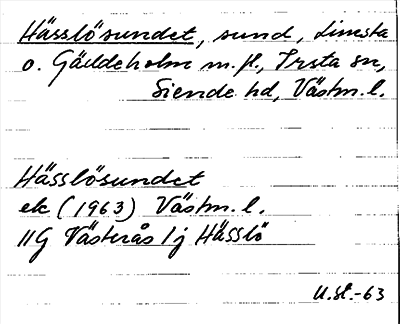 Hässlösundet, sund, Limsta
o. Gäddeholm m.fl., Irsta sn,
Siende hd, Västm.l.
Hässlösundet
ek (1963) Västm.l.
11G Västerås 1j Hässlö
U.sl.-63